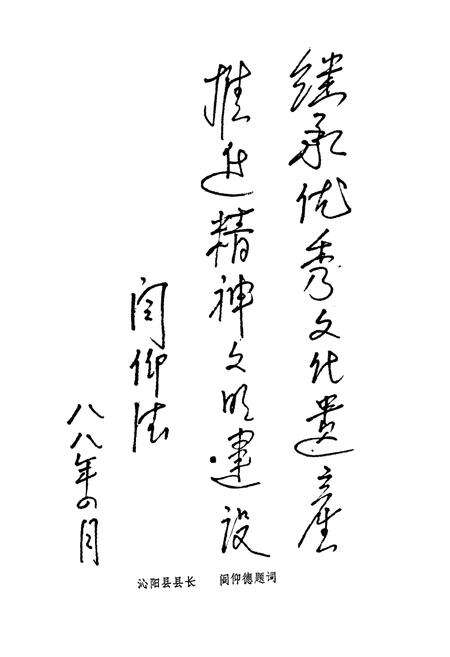 继承优秀文化遗产
推进精神文明建设
闫仰德
八八年四月
沁阳县县长 闫仰德题词